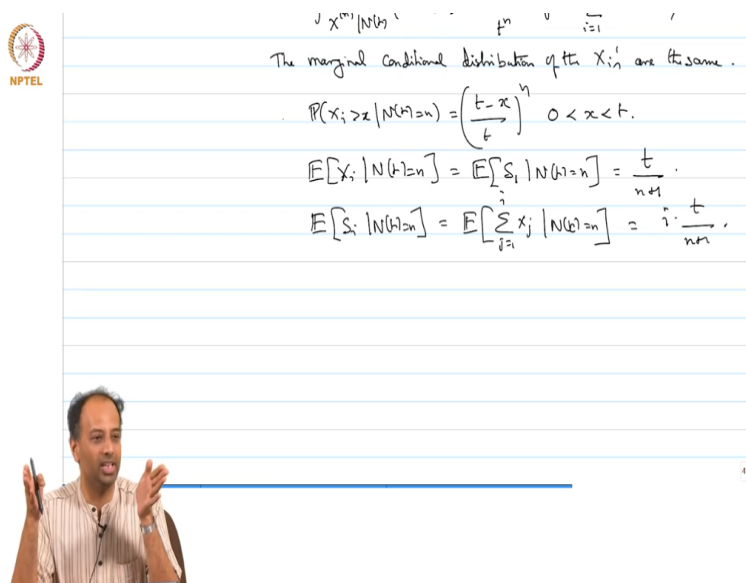 f X⁽ⁿ⁾|N(t) tⁿ i=1
The marginal conditional distribution of the Xᵢ's are the same.
NPTEL
P(Xᵢ>x|N(t)=n) = ((t-x)/t)ⁿ 0<x<t.
E[Xᵢ|N(t)=n] = E[S₁|N(t)=n] = t/(n+1).
E[Sᵢ|N(t)=n] = E[∑ⱼ₌₁ⁱ Xⱼ|N(t)=n] = i·t/(n+1).
4